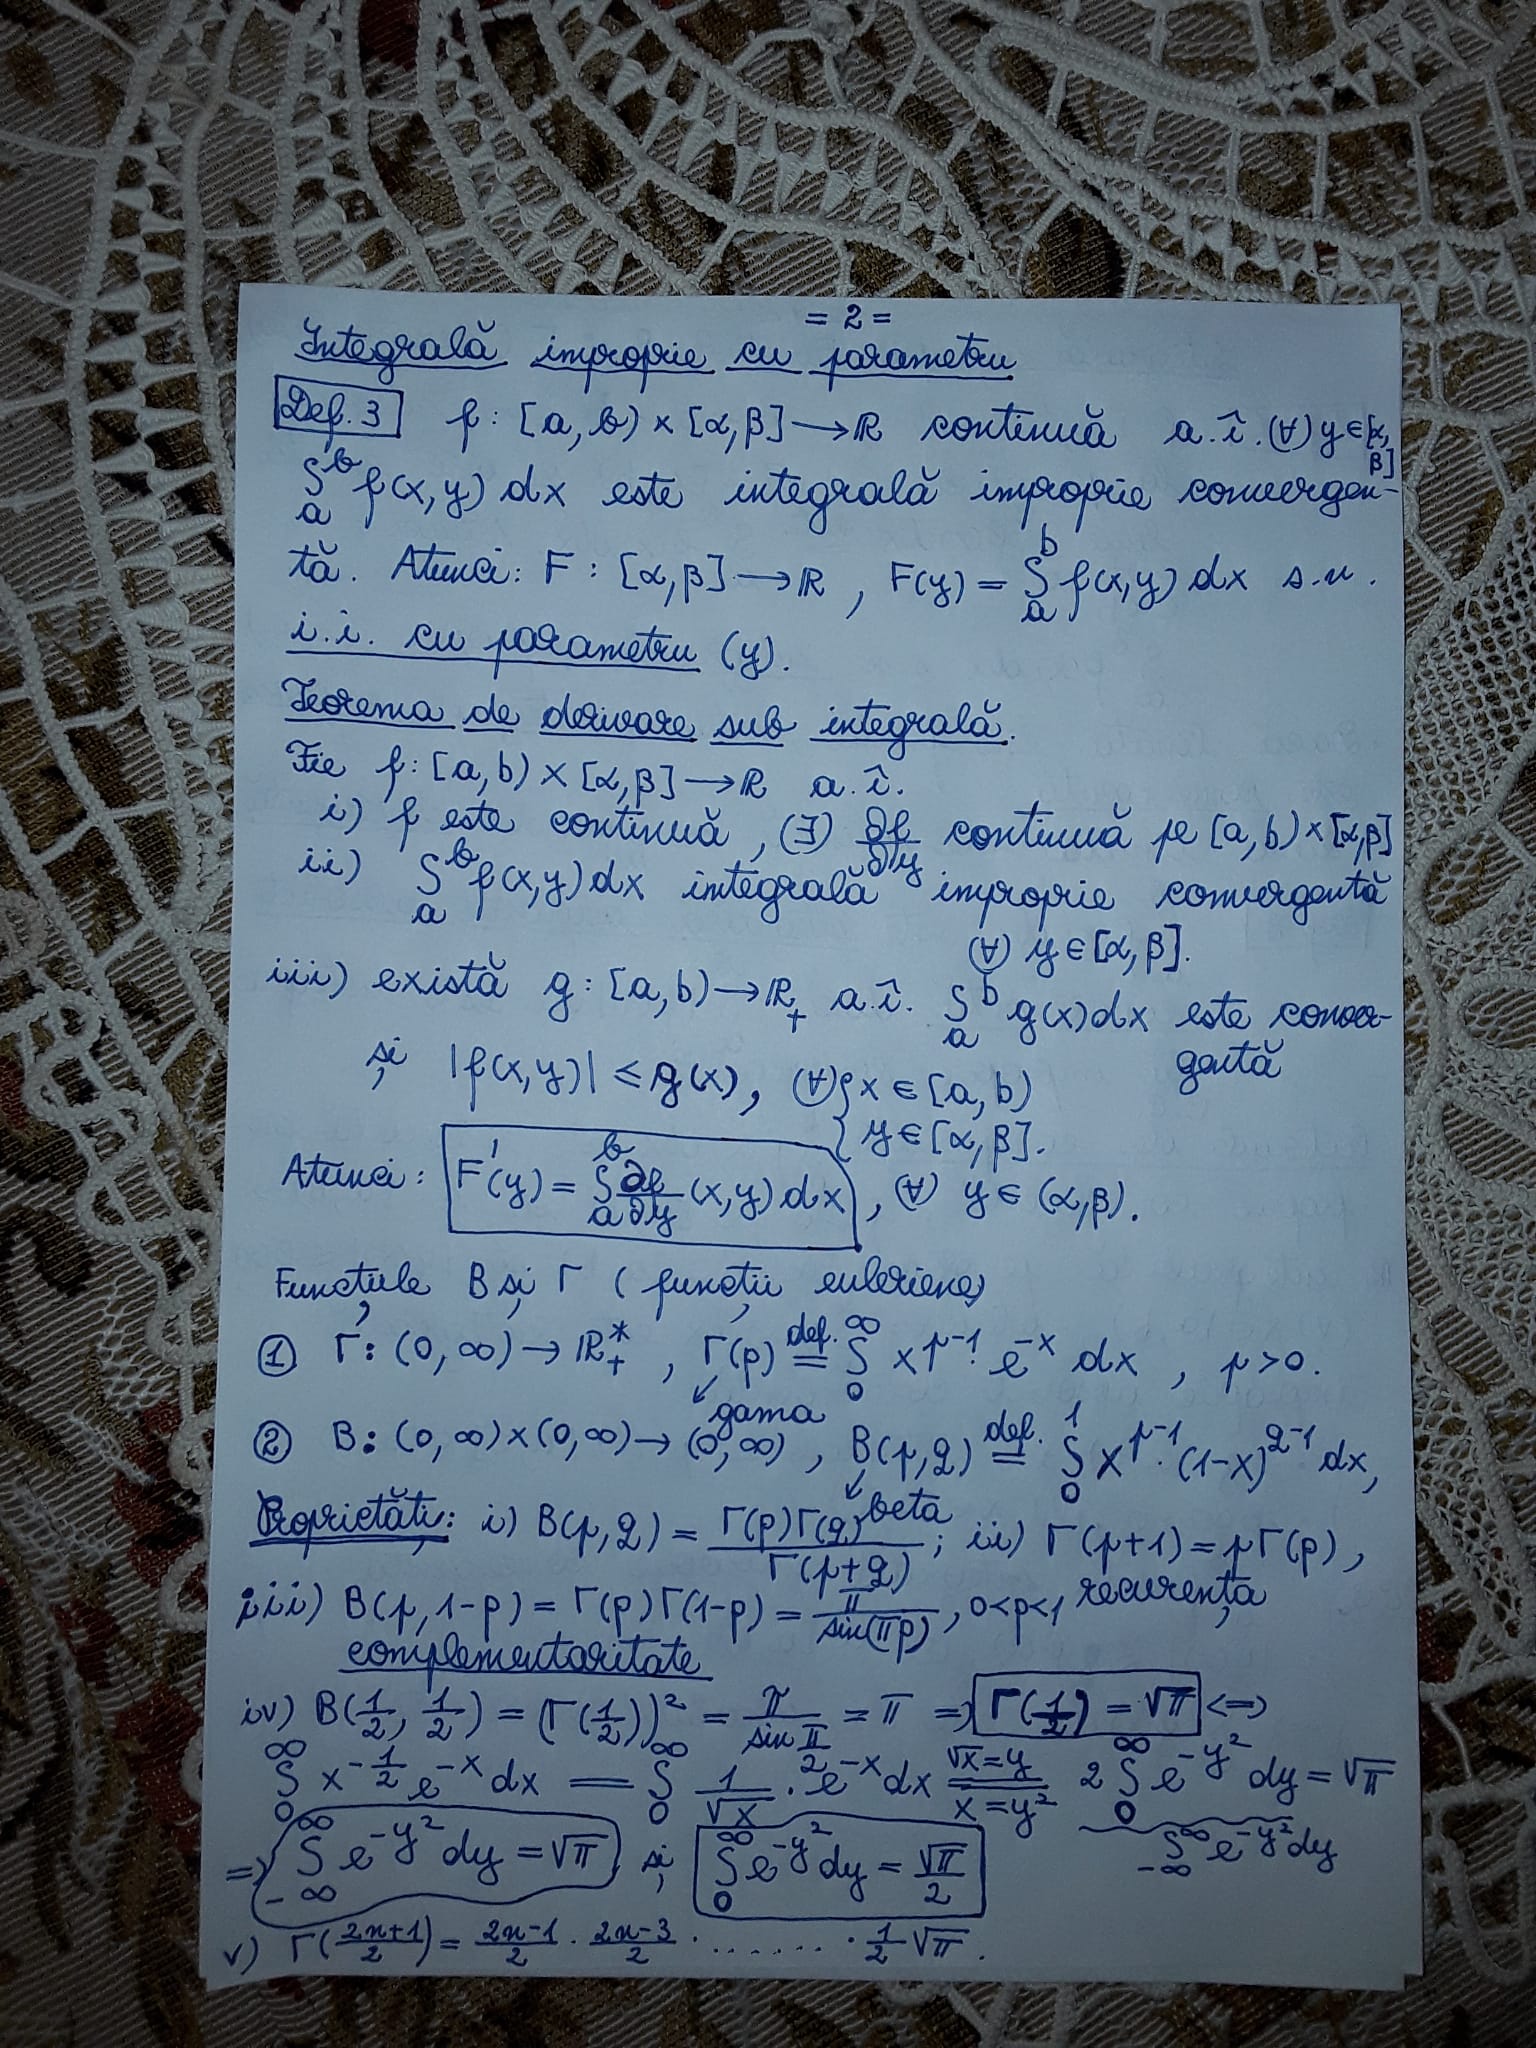 = 2 =
Integrală improprie cu parametru
Def. 3 f: [a, b) × [α, β] → ℝ continuă a.î. (∀) y ∈ [α, β]
∫ₐᵇ f(x,y) dx este integrală improprie convergen-
tă. Atunci: F : [α, β] → ℝ , F(y) = ∫ₐᵇ f(x,y) dx s.n.
i.i. cu parametru (y).
Teorema de derivare sub integrală.
Fie f: [a, b) × [α, β] → ℝ a.î.
i) f este continuă , (∃) ∂f/∂y continuă pe [a, b) × [α, β]
ii) ∫ₐᵇ f(x,y) dx integrală improprie convergentă
(∀) y ∈ [α, β].
iii) există g: [a, b) → ℝ₊ a.î. ∫ₐᵇ g(x) dx este conver-
gentă
și |f(x,y)| ≤ g(x), (∀) { x ∈ [a, b)
{ y ∈ [α, β].
Atunci: F'(y) = ∫ₐᵇ ∂f/∂y (x,y) dx , (∀) y ∈ (α, β).
Funcțiile B și Γ ( funcții euleriene)
① Γ: (0, ∞) → ℝ₊* , Γ(p) def.= ∫₀^∞ x^(p-1) · e^(-x) dx , p > 0.
gama
② B: (0, ∞) × (0, ∞) → (0, ∞) , B(p, q) def.= ∫₀¹ x^(p-1) · (1-x)^(q-1) dx,
beta
Proprietăți: i) B(p, q) = Γ(p)Γ(q)/Γ(p+q) ; ii) Γ(p+1) = pΓ(p) ,
recurența
iii) B(p, 1-p) = Γ(p)Γ(1-p) = π/sin(πp) , 0<p<1
complementaritate
iv) B(1/2, 1/2) = (Γ(1/2))² = π/sin π/2 = π ⇒ Γ(1/2) = √π ⇔
∫₀^∞ x^(-1/2) e^(-x) dx = ∫₀^∞ 1/√x · e^(-x) dx √x = y x = y² 2 ∫₀^∞ e^(-y²) dy = √π
∫_-∞^∞ e^(-y²) dy
⇒ ∫_-∞^∞ e^(-y²) dy = √π și ∫₀^∞ e^(-y²) dy = √π/2
v) Γ((2n+1)/2) = (2n-1)/2 · (2n-3)/2 · ....... · 1/2 √π .